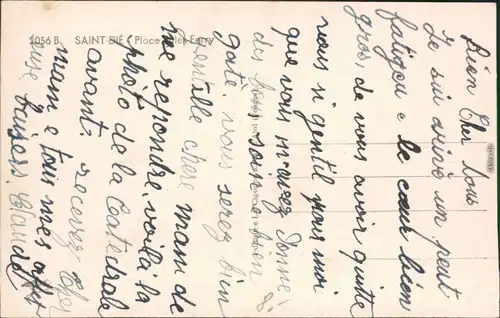 1056 B. SAINT-DIÉ - Place Jules Ferry
Bien Cher tous
Je sui arivé un peut
fatigeu e le cœur bien
gros de vous avoir quitte
vous si gentil pour moi
que vous m'avez donné
des bon soin e bien
gaté. vous serez bien
gentille chere maman de
me repondre. voila la
photo de la Catedrale
avant. recevez Cher
mam e tous mes affec
baisers. Claude